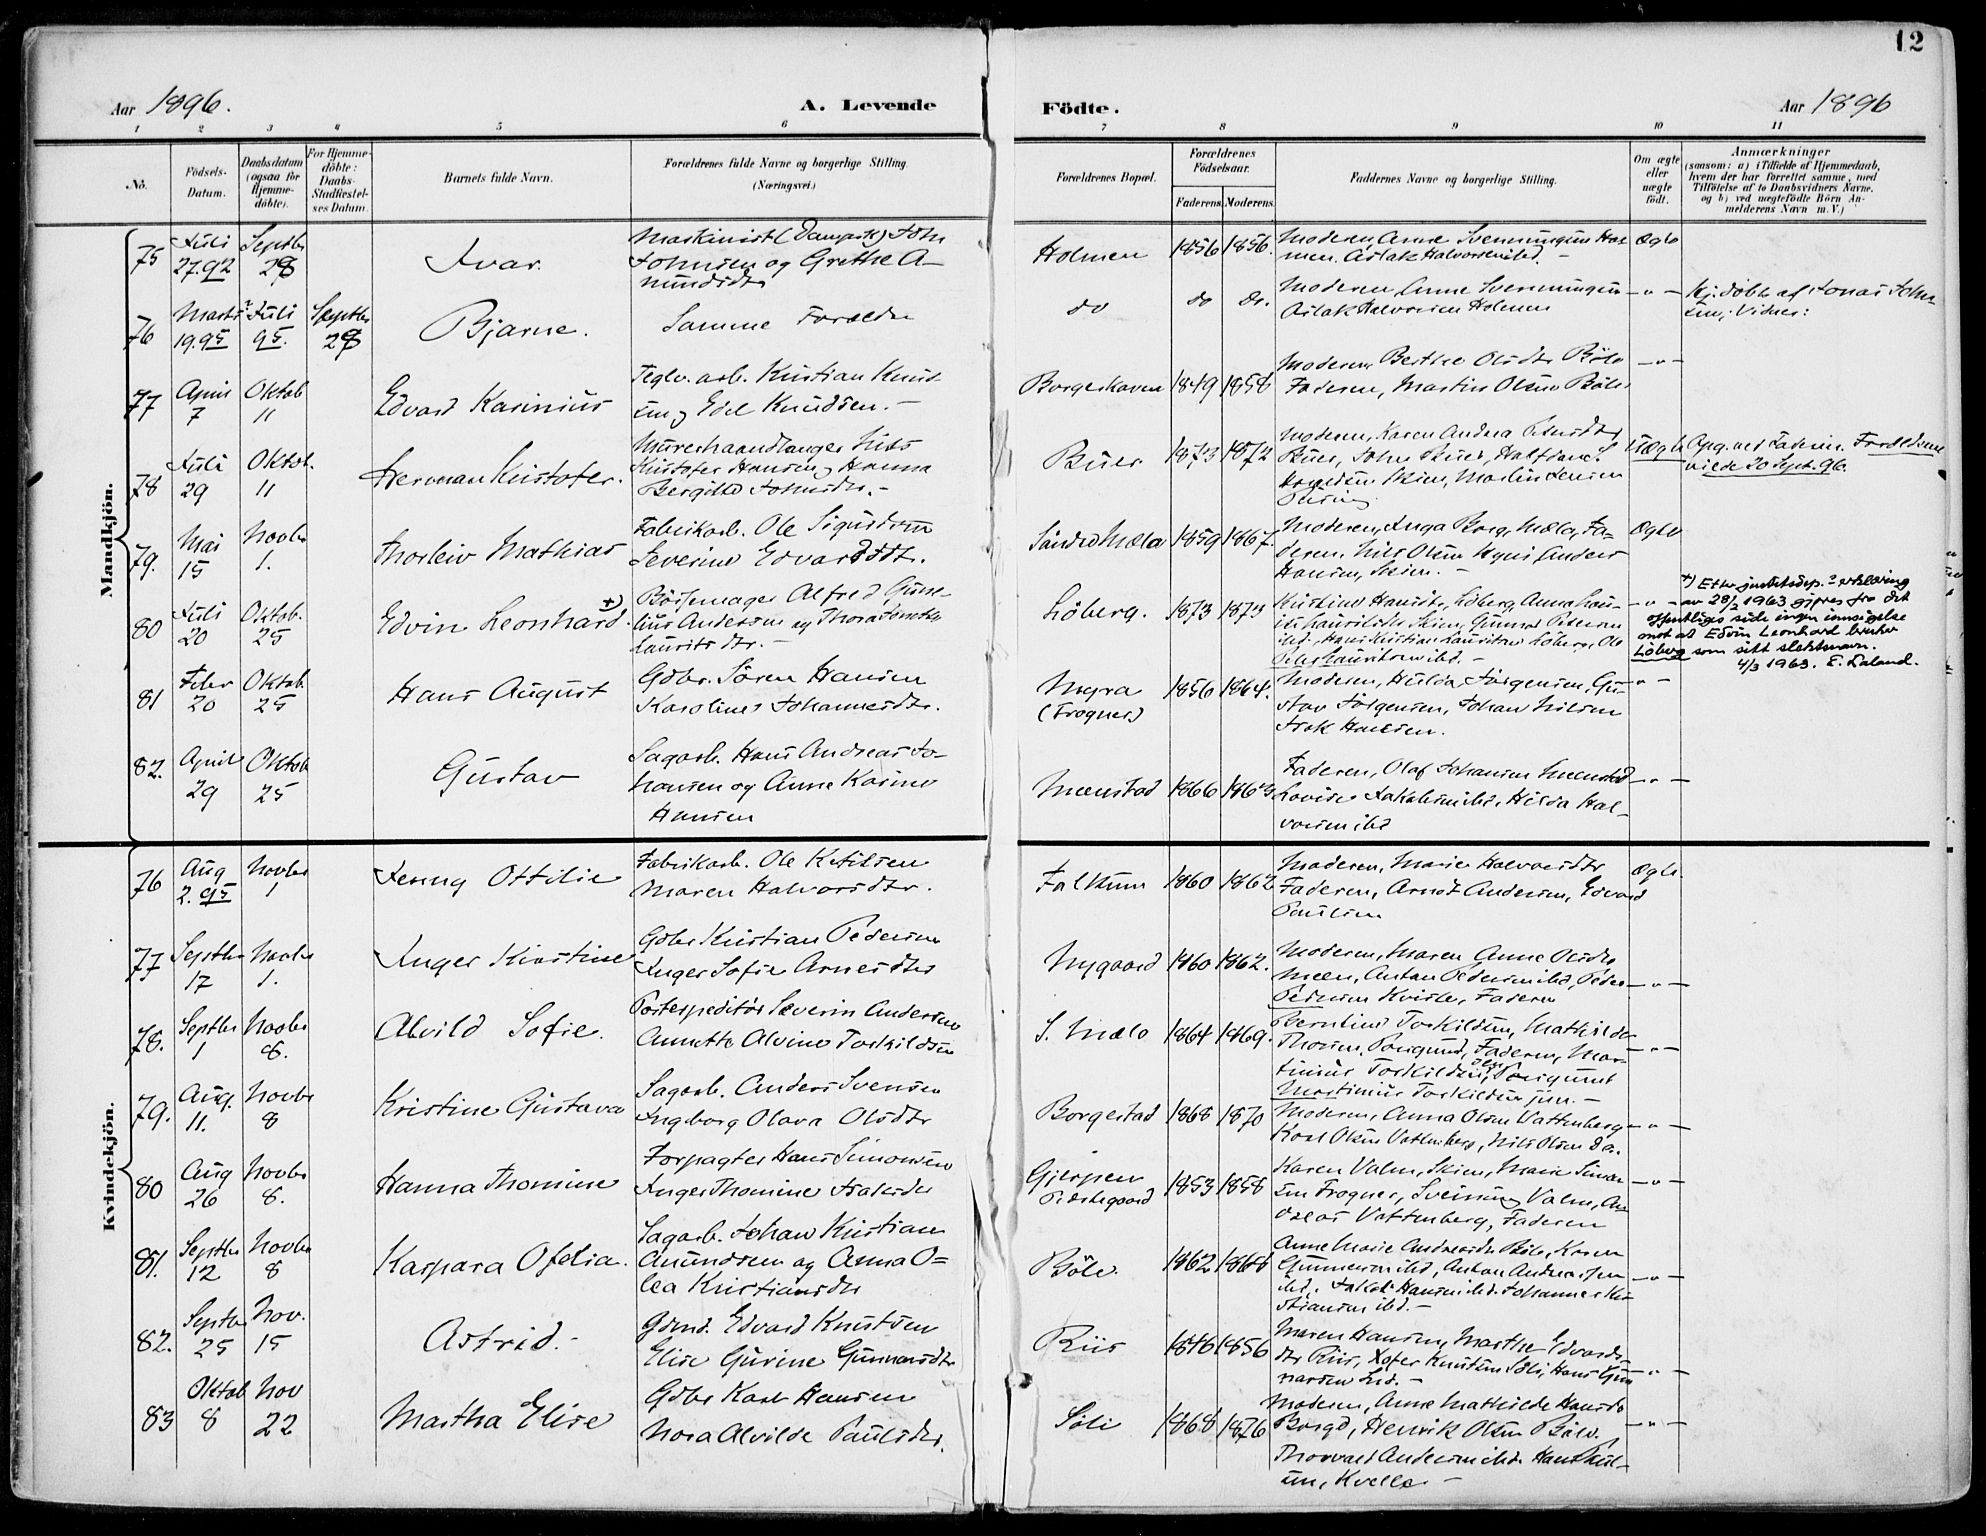 12
Aar 1896.
A. Levende
Födte.
Aar 1896
1 2 3 4 5 6 7 8 9 10 11
No.
Födsels-
Datum.
Daabsdatum
(ogsaa for
Hjemme-
döbte).
For Hjemme-
döbte:
Daabs-
Stadfæstel-
ses Datum.
Barnets fulde Navn.
Forældrenes fulde Navne og borgerlige Stilling.
(Næringsvei.)
Forældrenes Bopæl.
Forældrenes
Födselsaar.
Faderens. Moderens.
Faddernes Navne og borgerlige Stilling.
Om ægte
eller
uægte
födt.
Anmærkninger
(saasom: a) i Tilfælde af Hjemmedaab,
hvem der har forrettet samme, med
Tilföielse af to Daabsvidners Navne.
og b) ved uægtefödte Börn An-
melderens Navn m. V.)
Mandkjön.
75 Juli 27.92 Septbr 28 Ivar.
Maskinist (Dampsk) John
Johnsen og Grethe A-
mundsdtr
Holmen 1856 1856.
Moderen, Anne Svenningsen Hol
men. Aslak Halvorsen ibd. -
Ægte
76 Marts 19.95 Juli 95. Septbr 28 Bjarne.
Samme Forældre
do do do.
Moderen, Anne Svenningsen
Aslak Halvorsen Holmen
- " -
Hj. döbt af Jonas John
sen, Vidner:
77 April 7 Oktob 11 Edvard Karinius
Teglv. arb. Kristian Knud
sen, Edel Knudsen. -
Borgeskoven 1849 1858
Moderen, Berthe Olsdtr Böle
Faderen, Martin Olsen Böle
- " -
78 Juli 29 Oktob. 11 Herman Kristofer.
Murerhaandlanger Nils
Kristofer Hansen, Hanna
Bergitte Johnsdtr. -
Buer 1873 1872
Moderen, Karen Andrea
Buer, John Buer, Halfran
Skien, Martin Jensen
Uægte
Opg. ved Faderen. Forældrene
viede 20 Sept. 96.
79. Mai 15 Novbr 1. Thorleiv Mathias
Fabrikarb. Ole Sigurdsen
Severine Edvardsdtr.
Söndre Mæla 1859 1867.
Moderen, Inga Borg, Mæla, Fa-
deren, Nils Olsen Anders
Hansen, Skien. -
Ægte
80 Juli 20 Oktob. 25 Edvin Leonhard. +)
Börsemager Alfred Gune
lius Andersen og Thora Dorothea
Lauritsdtr. -
Löberg. 1873 1873
Kristine Hansdtr, Löberg, Anna Lau-
Skien, Gunnar Petersen
ibd, Hans Kristian Lauritsen Löberg, Ole
Lauritsen ibd. -
- " -
+) Etter justitsdep.s erklæring
av 28/2 1963 gjøres fra det
offentliges side ingen innsigelse
mot at Edvin Leonhard bruker
Löberg som sitt slektsnavn.
4/3 1963. E. Laland.
81 Febr 20 Oktob. 25 Hans August
Gdbr. Sören Hansen
Karoline Johannesdtr.
Myra
(Frogner)
1856 1864.
Moderen, Hulda Jörgensen, Gu-
stav Jörgensen, Johan Nilsen
Isak Hansen.
- " -
82. April 29 Oktob 25 Gustav
Sagarb. Hans Andreas Jo-
hansen og Anne Karine
Hansen
Menstad 1866 1863
Faderen, Olaf Johansen Menstad
Lovise Jakobsen ibd, Hilda Hal-
vorsen ibd
- " -
Kvindekjön.
76 Aug 2.95 Novbr 1 Jenny Ottilie
Fabrikarb. Ole Ketilsen
Maren Halvorsdtr.
Falkum 1860 1862
Moderen, Marie Halvorsdtr
Faderen, Arnot Andersen, Edvard
Paulsen
Ægte
77 Septbr 17 Novbr 1. Inger Kirstine
Gdbr Kristian Pedersen
Inger Sofie Arnesdtr
Nygaard 1860 1862.
Moderen, Maren Anne Olsdtr
Meen, Anton Pedersen ibd, Peder
Pedersen Kvisle, Faderen
- " -
78. Septbr 1 Novbr 8. Alvild Sofie.
Postexpeditör Severin Andersen
Annette Alvine Torkildsen
S. Mæla 1864 1869.
Berntine Torkildsen, Mathilde
Thorsen, Porsgrund, Faderen, Mar-
tinius Torkildsen sen, Porsgrunt
Martinius Torkildsen jun. -
- " -
79. Aug. 11. Novbr 8 Kristine Gustava
Sagarb. Anders Svensen
Ingeborg Olava Olsdtr
Borgestad 1868 1870
Moderen, Anna Olsen Vattenberg
Karl Olsen Vattenberg, Nils Olsen
- " -
80 Aug 26 Novbr 8. Hanna Thomine
Forpagter Hans Simonsen
Inger Thomine Isaksdtr
Gjerpen
Prestegaard
1853 1858
Karen Valen, Skien, Marie Simon
sen Frogner, Sveinung Valen, An
dreas Vattenberg, Faderen
- " -
81. Septbr 12 Novbr 8 Kaspara Ofelia.
Sagarb. Johan Kristian
Amundsen og Anna O-
lea Kristiansdtr
Böle. 1862 1868
Anne Marie Andreasdtr Böle, Karen
Gunnersen ibd, Anton Andreassen
ibd, Jakob Hansen ibd. Johannes Kri
stiansen ibd. -
- " -
82. Septbr 25 Nov. 15 Astrid.
Gdmd. Edvard Knutsen
Elise Gurine Gunnarsdtr
Riis 1846 1856
Maren Hansen, Marthe Edvards
dtr Riis, Xofer Knutsen Söli, Hans Gun
narsen ibd. -
- " -
83 Oktob 8 Nov 22 Martha Elise
Gdbr Karl Hansen
Nora Alvilde Paulsdtr.
Söli 1868 1876
Moderen, Anne Mathilde Hansdtr
Borge, Henrik Olsen Böle,
Thorvald Andersen ibd. Hans Nil-
sen, Kvelle -
- " -